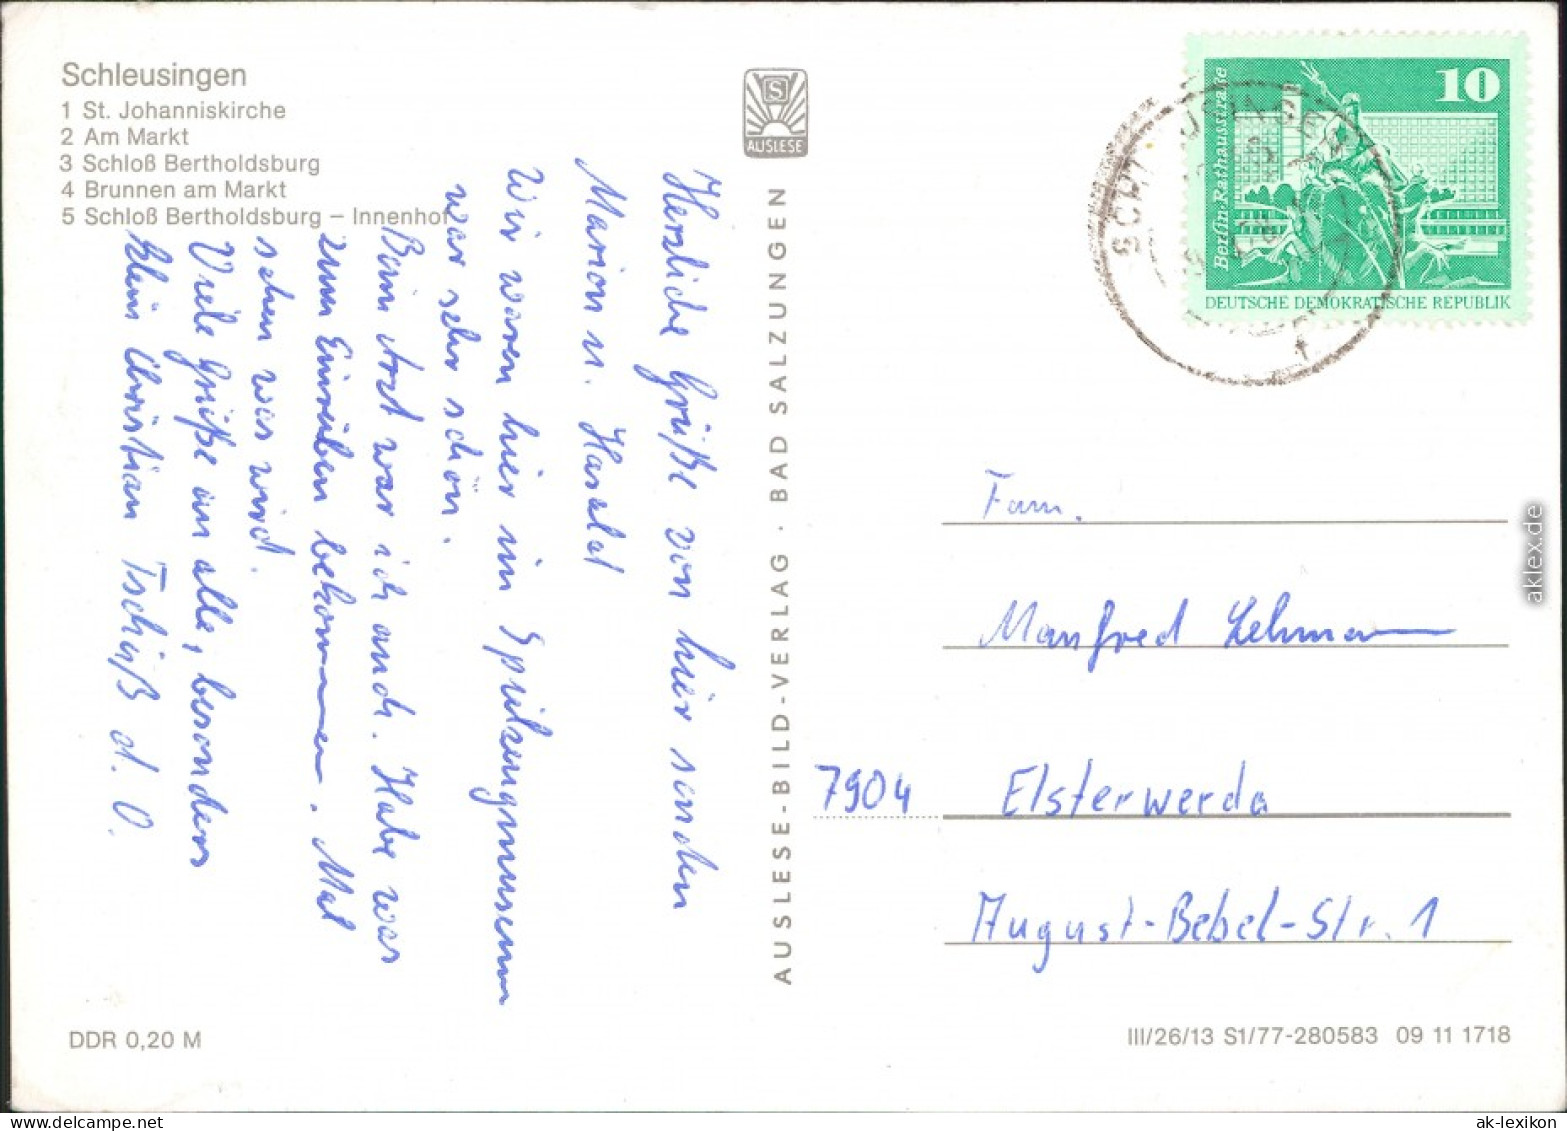 Schleusingen
1 St. Johanniskirche
2 Am Markt
3 Schloß Bertholdsburg
4 Brunnen am Markt
5 Schloß Bertholdsburg – Innenhof
S
AUSLESE
Herzliche Grüße von hier senden
Marion u. Harald
Wir waren hier im Spielzeugmuseum
war sehr schön.
Beim Arzt war ich auch. Habe was
zum Einreiben bekommen. Mal
sehen was wird.
Viele Grüße an alle, besonders
klein Christian Tschüß d. O.
AUSLESE-BILD-VERLAG · BAD SALZUNGEN
Berlin-Rathausstraße
10
DEUTSCHE DEMOKRATISCHE REPUBLIK
Fam.
Manfred Lehmann
7904 Elsterwerda
August-Bebel-Str. 1
DDR 0,20 M
III/26/13 S1/77-280583 09 11 1718
aklex.de
www.delcampe.net
ak-lexikon